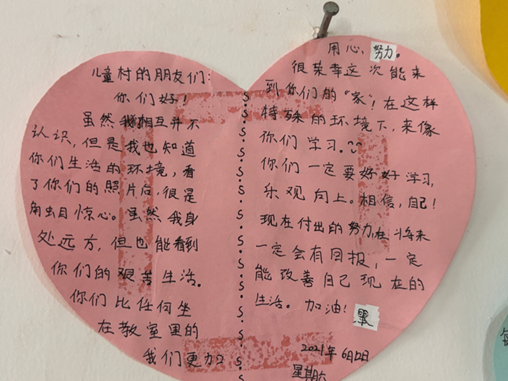 儿童村的朋友们:
你们好!
虽然我相互并不
认识,但是我也知道
你们生活的环境,看
了你们的照片后,很是
角虫目惊心。虽然我身
处远方,但也能看到
你们的艰苦生活。
你们比任何坐
在教室里的
我们更加
用心,努力。
很荣幸这次能来
到你们的“家”!在这样
特殊的环境下,来像
你们学习。~
你们一定要好好学习,
乐观向上。相信,自己!
现在付出的努力在将来
一定会有回报,一定
能改善自己现在的
生活。加油!
2021年6月12日
星期六